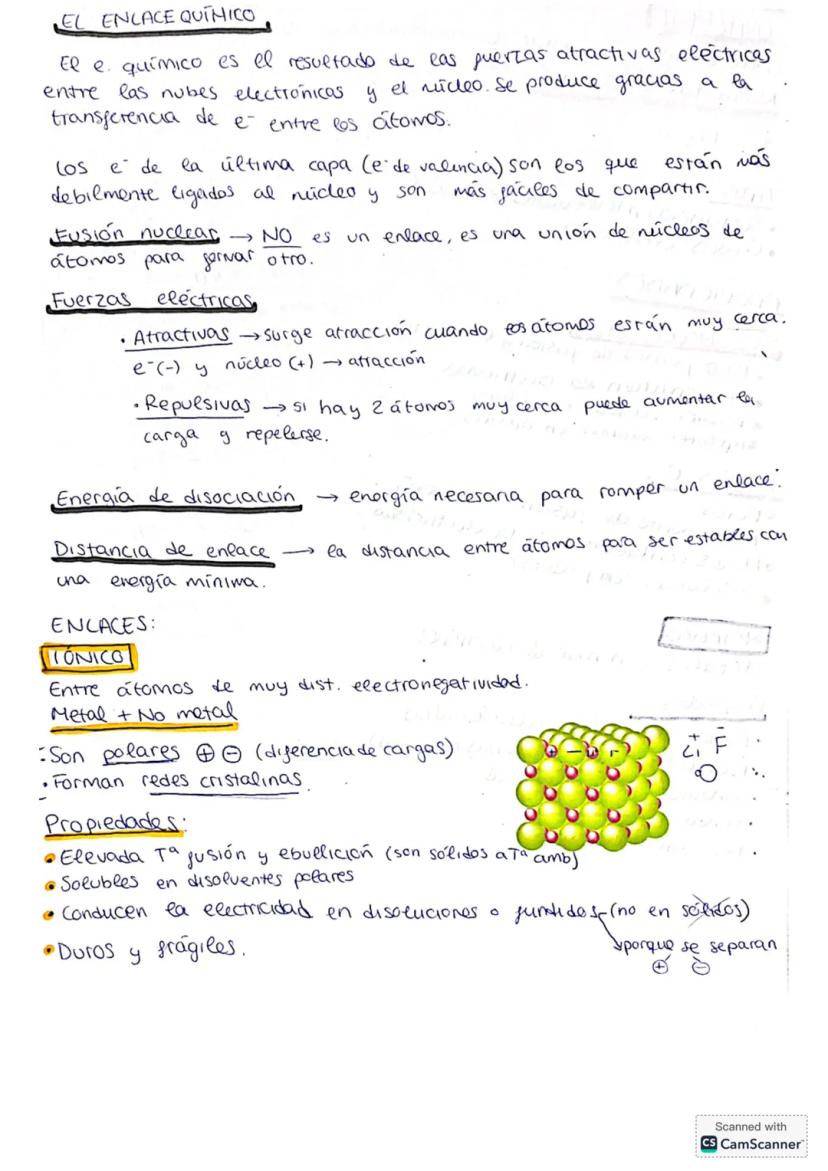 EL ENLACE QUÍMICO
El e. químico es el resultado de las fuerzas atractivas eléctricas
entre las nubes electrónicas y el núcleo. Se produce gracias a la
transferencia de e⁻ entre los átomos.
Los e⁻ de la última capa (e⁻ de valencia) son los que están más
debilmente ligados al núcleo y son más fáciles de compartir.
Fusión nuclear → NO es un enlace, es una unión de núcleos de
átomos para formar otro.
Fuerzas eléctricas
· Atractivas → surge atracción cuando los átomos están muy cerca.
e⁻(-) y núcleo (+) → atracción
· Repulsivas → si hay 2 átomos muy cerca puede aumentar la
carga y repelerse.
Energía de disociación → energía necesaria para romper un enlace.
Distancia de enlace → la distancia entre átomos para ser estables con
una energía mínima.
ENLACES:
IÓNICO
Entre átomos de muy dist. electronegatividad.
Metal + No metal
· Son polares ⊕ ⊖ (diferencia de cargas)
Li⁺ F⁻
· Forman redes cristalinas.
Propiedades:
• Elevada Tª fusión y ebullición (son sólidos a Tª amb)
• Solubles en disolventes polares
• Conducen la electricidad en disoluciones o fundidos (no en sólidos)
porque se separan
⊕ ⊖
• Duros y frágiles.
Scanned with
CS CamScanner